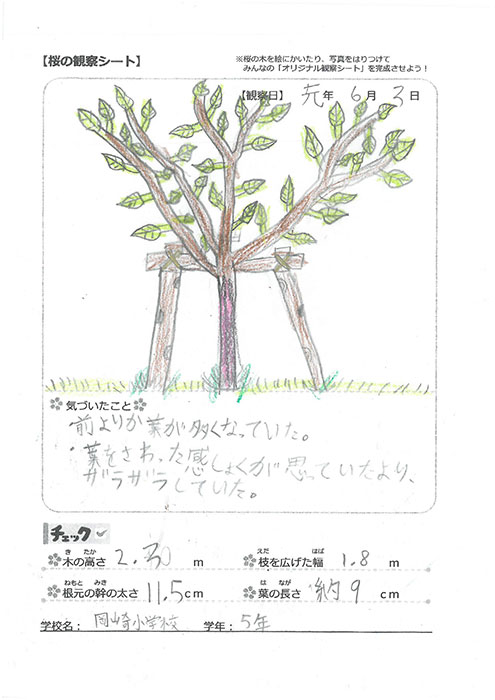 【桜の観察シート】
※桜の木を絵にかいたり、写真をはりつけて
みんなの「オリジナル観察シート」を完成させよう！
【観察日】 元年 6月 3日
気づいたこと
・前よりか葉が多くなっていた。
・葉をさわった感しょくが思っていたより、
ザラザラしていた。
チェック
木の高さ 2.30 m
枝を広げた幅 1.8 m
根元の幹の太さ 11.5cm
葉の長さ 約9 cm
学校名： 岡崎小学校 学年： 5年